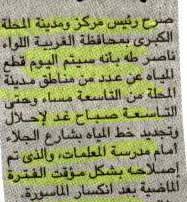 صرح رئيس مركز ومدينة المحلة
الكبرى بمحافظة الغربية اللواء
ناصر طه بأنه سيتم اليوم قطع
المياه عن عدد من مناطق مدينة
المحلة من التاسعة مساء وحتى
التاسعة صباح غد لإحلال
وتجديد خط المياه بشارع الجلاء
أمام مدرسة المعلمات، والذى تم
إصلاحه بشكل مؤقت الفترة
الماضية بعد انكسار الماسورة.